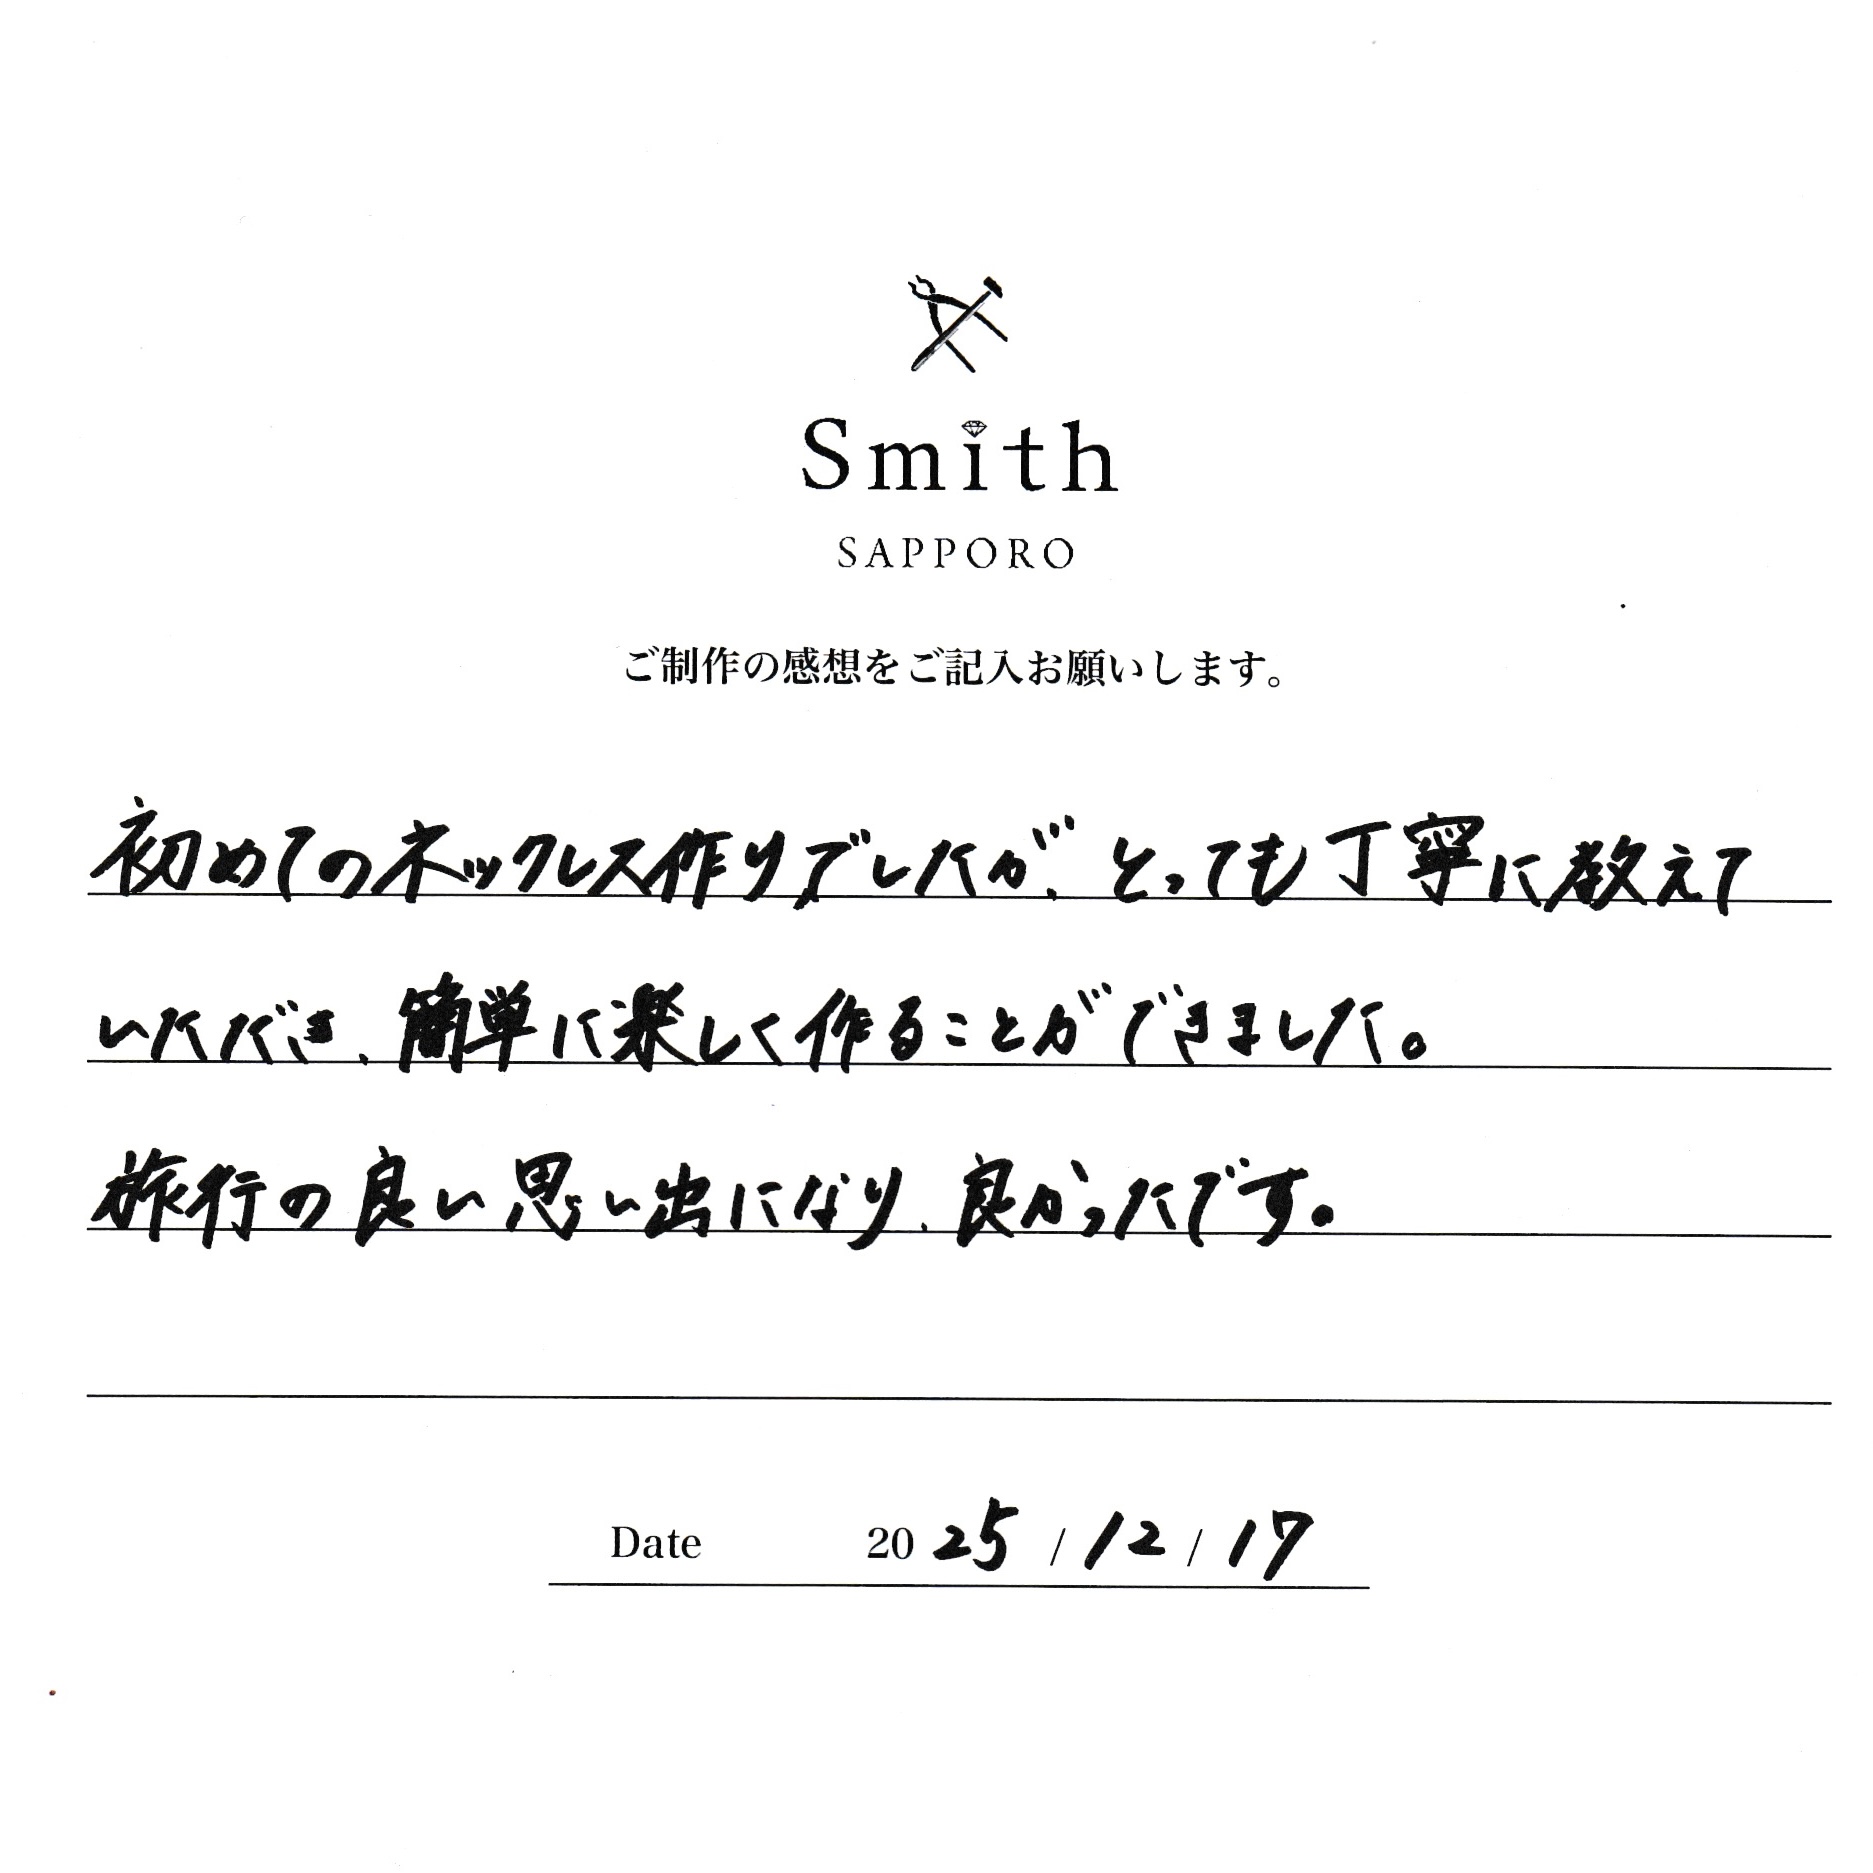 Smith
SAPPORO
ご制作の感想をご記入お願いします。
初めてのネックレス作りでしたが、とっても丁寧に教えて
いただき、簡単に楽しく作ることができました。
旅行の良い思い出になり、良かったです。
Date 2025/12/17